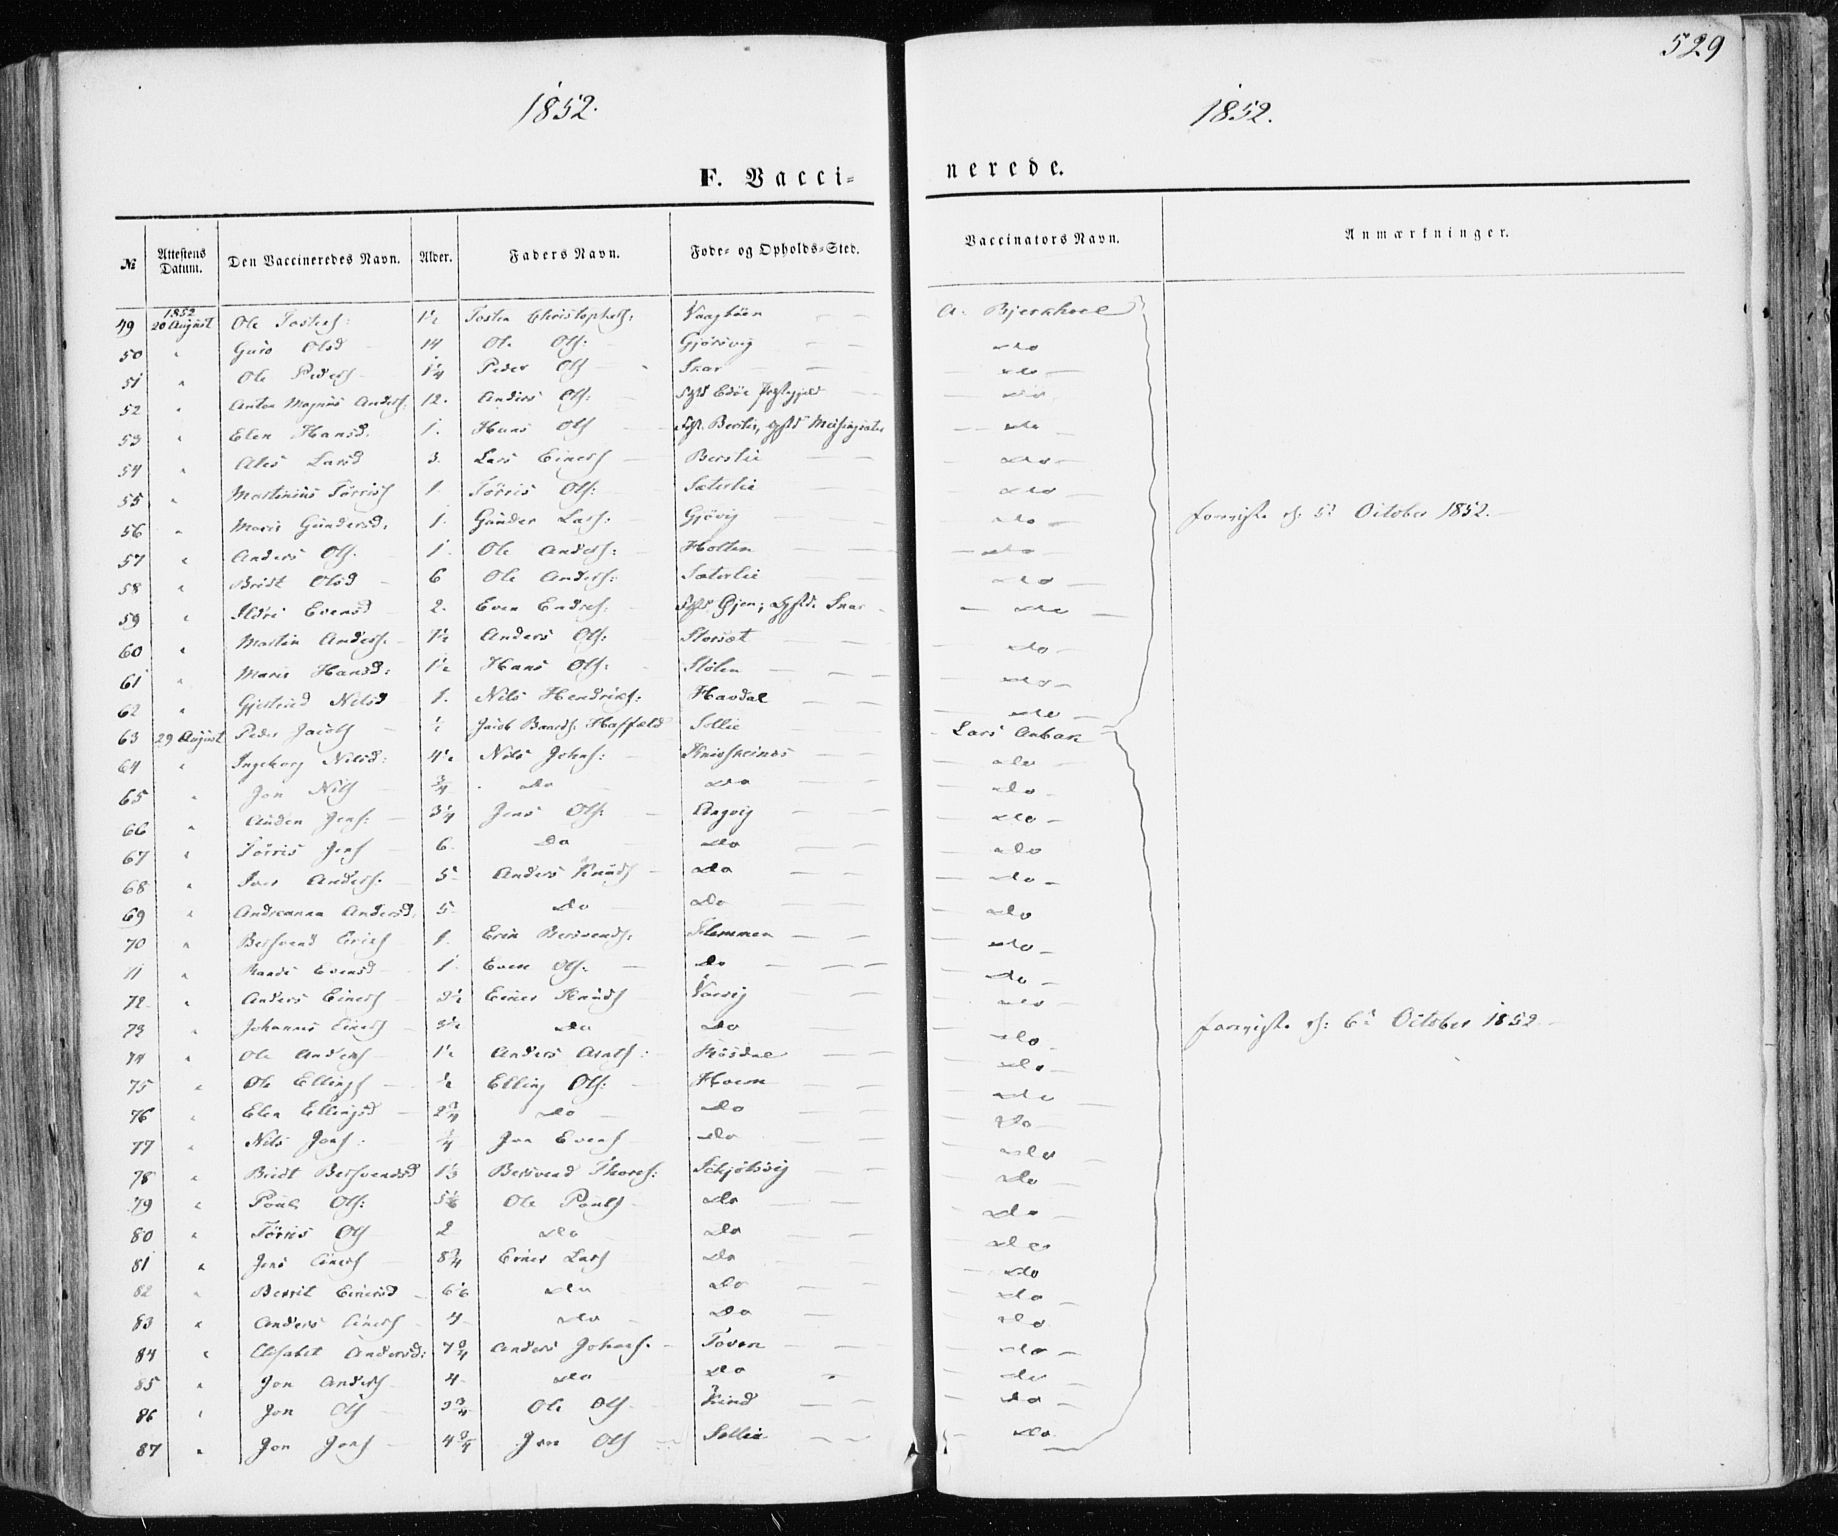 529
1852.
1852.
F. Vacci-
nerede.
№ Attestens Datum. Den Vaccineredes Navn. Alder. Faders Navn. Føde- og Opholds-Sted. Vaccinators Navn. Anmærkninger.
1852
49 20 August Ole Tostens: 1½ Tosten Christophers: Vaagbøen A. Bjerkhoel
50 " Guro Olsd 14 Ole Ols: Gjørsvig do
51 " Ole Peders 1¼ Peder Ols Snar do
52 " Anton Magnus Anders: 12. Anders Ols: Edøe Præstegjeld do
53 " Elen Hansd. 1. Hans Ols do
54 " Ales Larsd 3. Lars Einers Berslie do
55 " Martinius Tørris 1. Tørris Ols: Sæterlie do
56 " Marit Gundersd. 1. Gunder Lars: Gjøvig do foreviste 5d October 1852.
57 " Anders Ols: 1. Ole Anders: Holten do
58 " Bridt Olsd 6 Ole Anders: Sæterlie do
59 " Ildri Evensd 2. Even Endres: Øjen; Snar do
60 " Martin Anders. 7½ Anders Ols: Storset do
61 " Marit Hansd: 1½ Hans Ols: Stølen do
62 " Gjertrud Nilsd 1. Nils Hendriks: Havdal do
63 29 August Peder Jacobs ½ Jacob Baards. Haffæld Sollie Lars Aabak
64 " Ingeborg Nilsd: 4½ Nils Johns: do
65 " Jon Nils ¾ do do do
66 " Auden Jens: 3¼ Jens Ols: Angvig do
67 " Tørris Jens 6. Do do do
68 " Iver Anders. 5 Anders Knuds do do
69 " Andreanna Andersd. 5. Do do do
70 " Bersvend Erics 1. Erik Bersvends: Slemmen do
71 " Randi Evensd 1. Even Ols: do do
72 " " Anders Einers 3½ Einer Knuds Vaevig do
73 " Johannes Einers do do do foreviste 6d October 1852.
74 " Ole Anders 1½ Anders Arnts: Røsdal do
75 " Ole Ellings ½ Elling Ols: Hoem do
76 " Elen Ellingsd 2¾ do do do
77 " Nils Jons: ¾ Jon Evens do do
78 " Bridt Bersvendsd 1⅓ Bersvend Thores: Schjølsvig do
79 " Pouls Ols: 5⅙ Ole Pouls do do
80 " Tørris Ols 2 do do do
81 " Jens Einers 8¾ Einer Lars do do
82 " Berrit Einersd 6⅙ do do do
83 " Anders Einers 4 do do do
84 " Elisabet Andersd: 7¾ Anders Johans. Toven do
85 " Jon Anders 4 do do do
86 " Jon Ols 3¾ Ole Ols Rind do
87 " Jon Jons 4¾ Jon Ols Sollie do